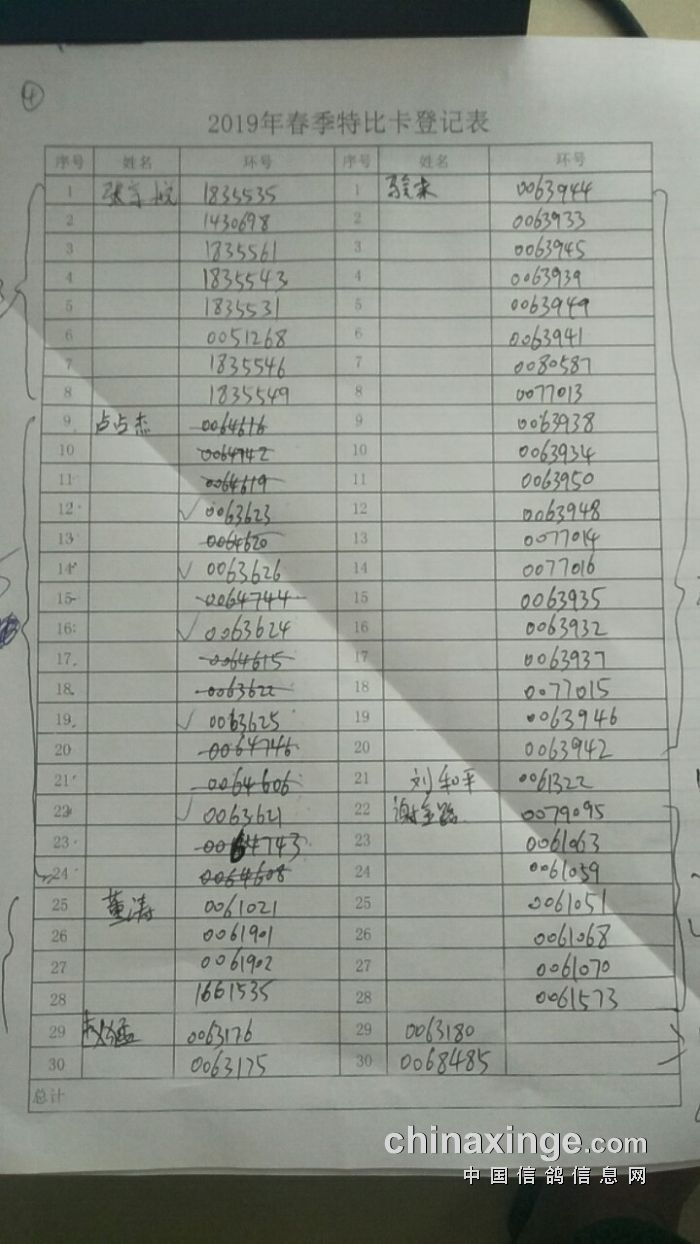 ④
2019年春季特比卡登记表
序号 姓名 环号 序号 姓名 环号
1 1835535 1 0063944
2 1430698 2 0063933
3 1835561 3 0063945
4 1835543 4 0063939
5 1835531 5 0063949
6 0051268 6 0063941
7 1835546 7 0080587
8 1835549 8 0077013
9 卢占杰 0064616 9 0063938
10 0064742 10 0063934
11 0064619 11 0063950
12 ✓ 0063623 12 0063948
13 0064620 13 0077014
14 ✓ 0063626 14 0077016
15 0064744 15 0063935
16 ✓ 0063624 16 0063932
17 0064615 17 0063937
18 0063622 18 0077015
19 ✓ 0063625 19 0063946
20 0064746 20 0063942
21 0064606 21 刘和平 0061322
22 ✓ 0063621 22 0079095
23 0064743 23 0061063
24 0064608 24 0061059
25 董涛 0061021 25 0061051
26 0061901 26 0061068
27 0061902 27 0061070
28 1661535 28 0061573
29 0063176 29 0063180
30 0063175 30 0068485
总计
chinaxinge.com
中国信鸽信息网